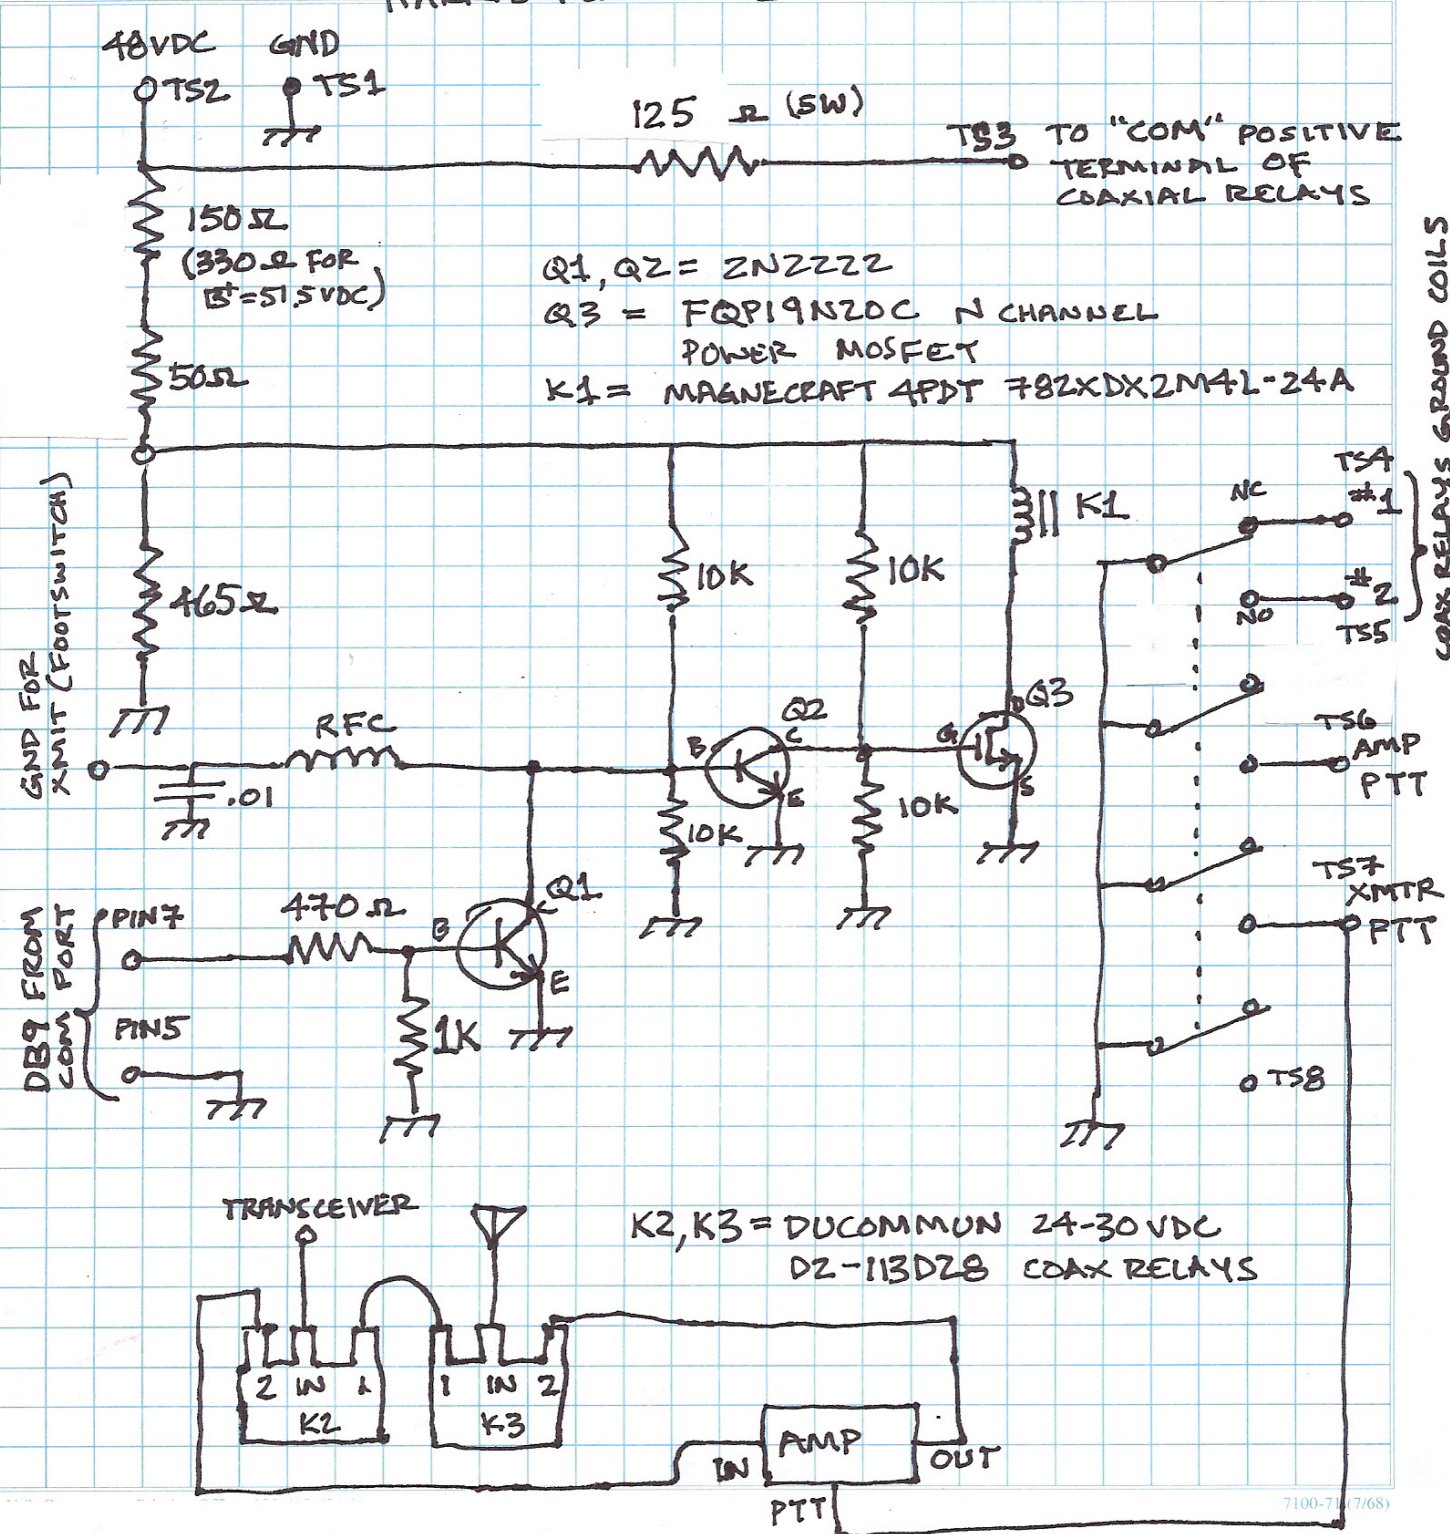 48VDC GND
TS2 TS1
125 Ω (5W)
TS3 TO "COM" POSITIVE
TERMINAL OF
COAXIAL RELAYS
150Ω
(330Ω FOR
B+=51.5VDC)
50Ω
Q1, Q2 = 2N2222
Q3 = FQP19N20C N CHANNEL
POWER MOSFET
K1 = MAGNECRAFT 4PDT 782XDX2M4L-24A
COAX RELAYS GROUND COILS
TS4
#1
NC
K1
#2
NO
TS5
10K
10K
465Ω
GND FOR
XMIT (FOOTSWITCH)
RFC
.01
Q2
B
C
E
10K
Q3
G
D
S
10K
TS6
AMP
PTT
TS7
XMTR
PTT
TS8
DB9 FROM
COM PORT
PIN7
470Ω
B
Q1
C
E
1K
PIN5
TRANSCEIVER
K2, K3 = DUCOMMUN 24-30VDC
D2-113D28 COAX RELAYS
2 IN 1
K2
1 IN 2
K3
AMP
IN
OUT
PTT